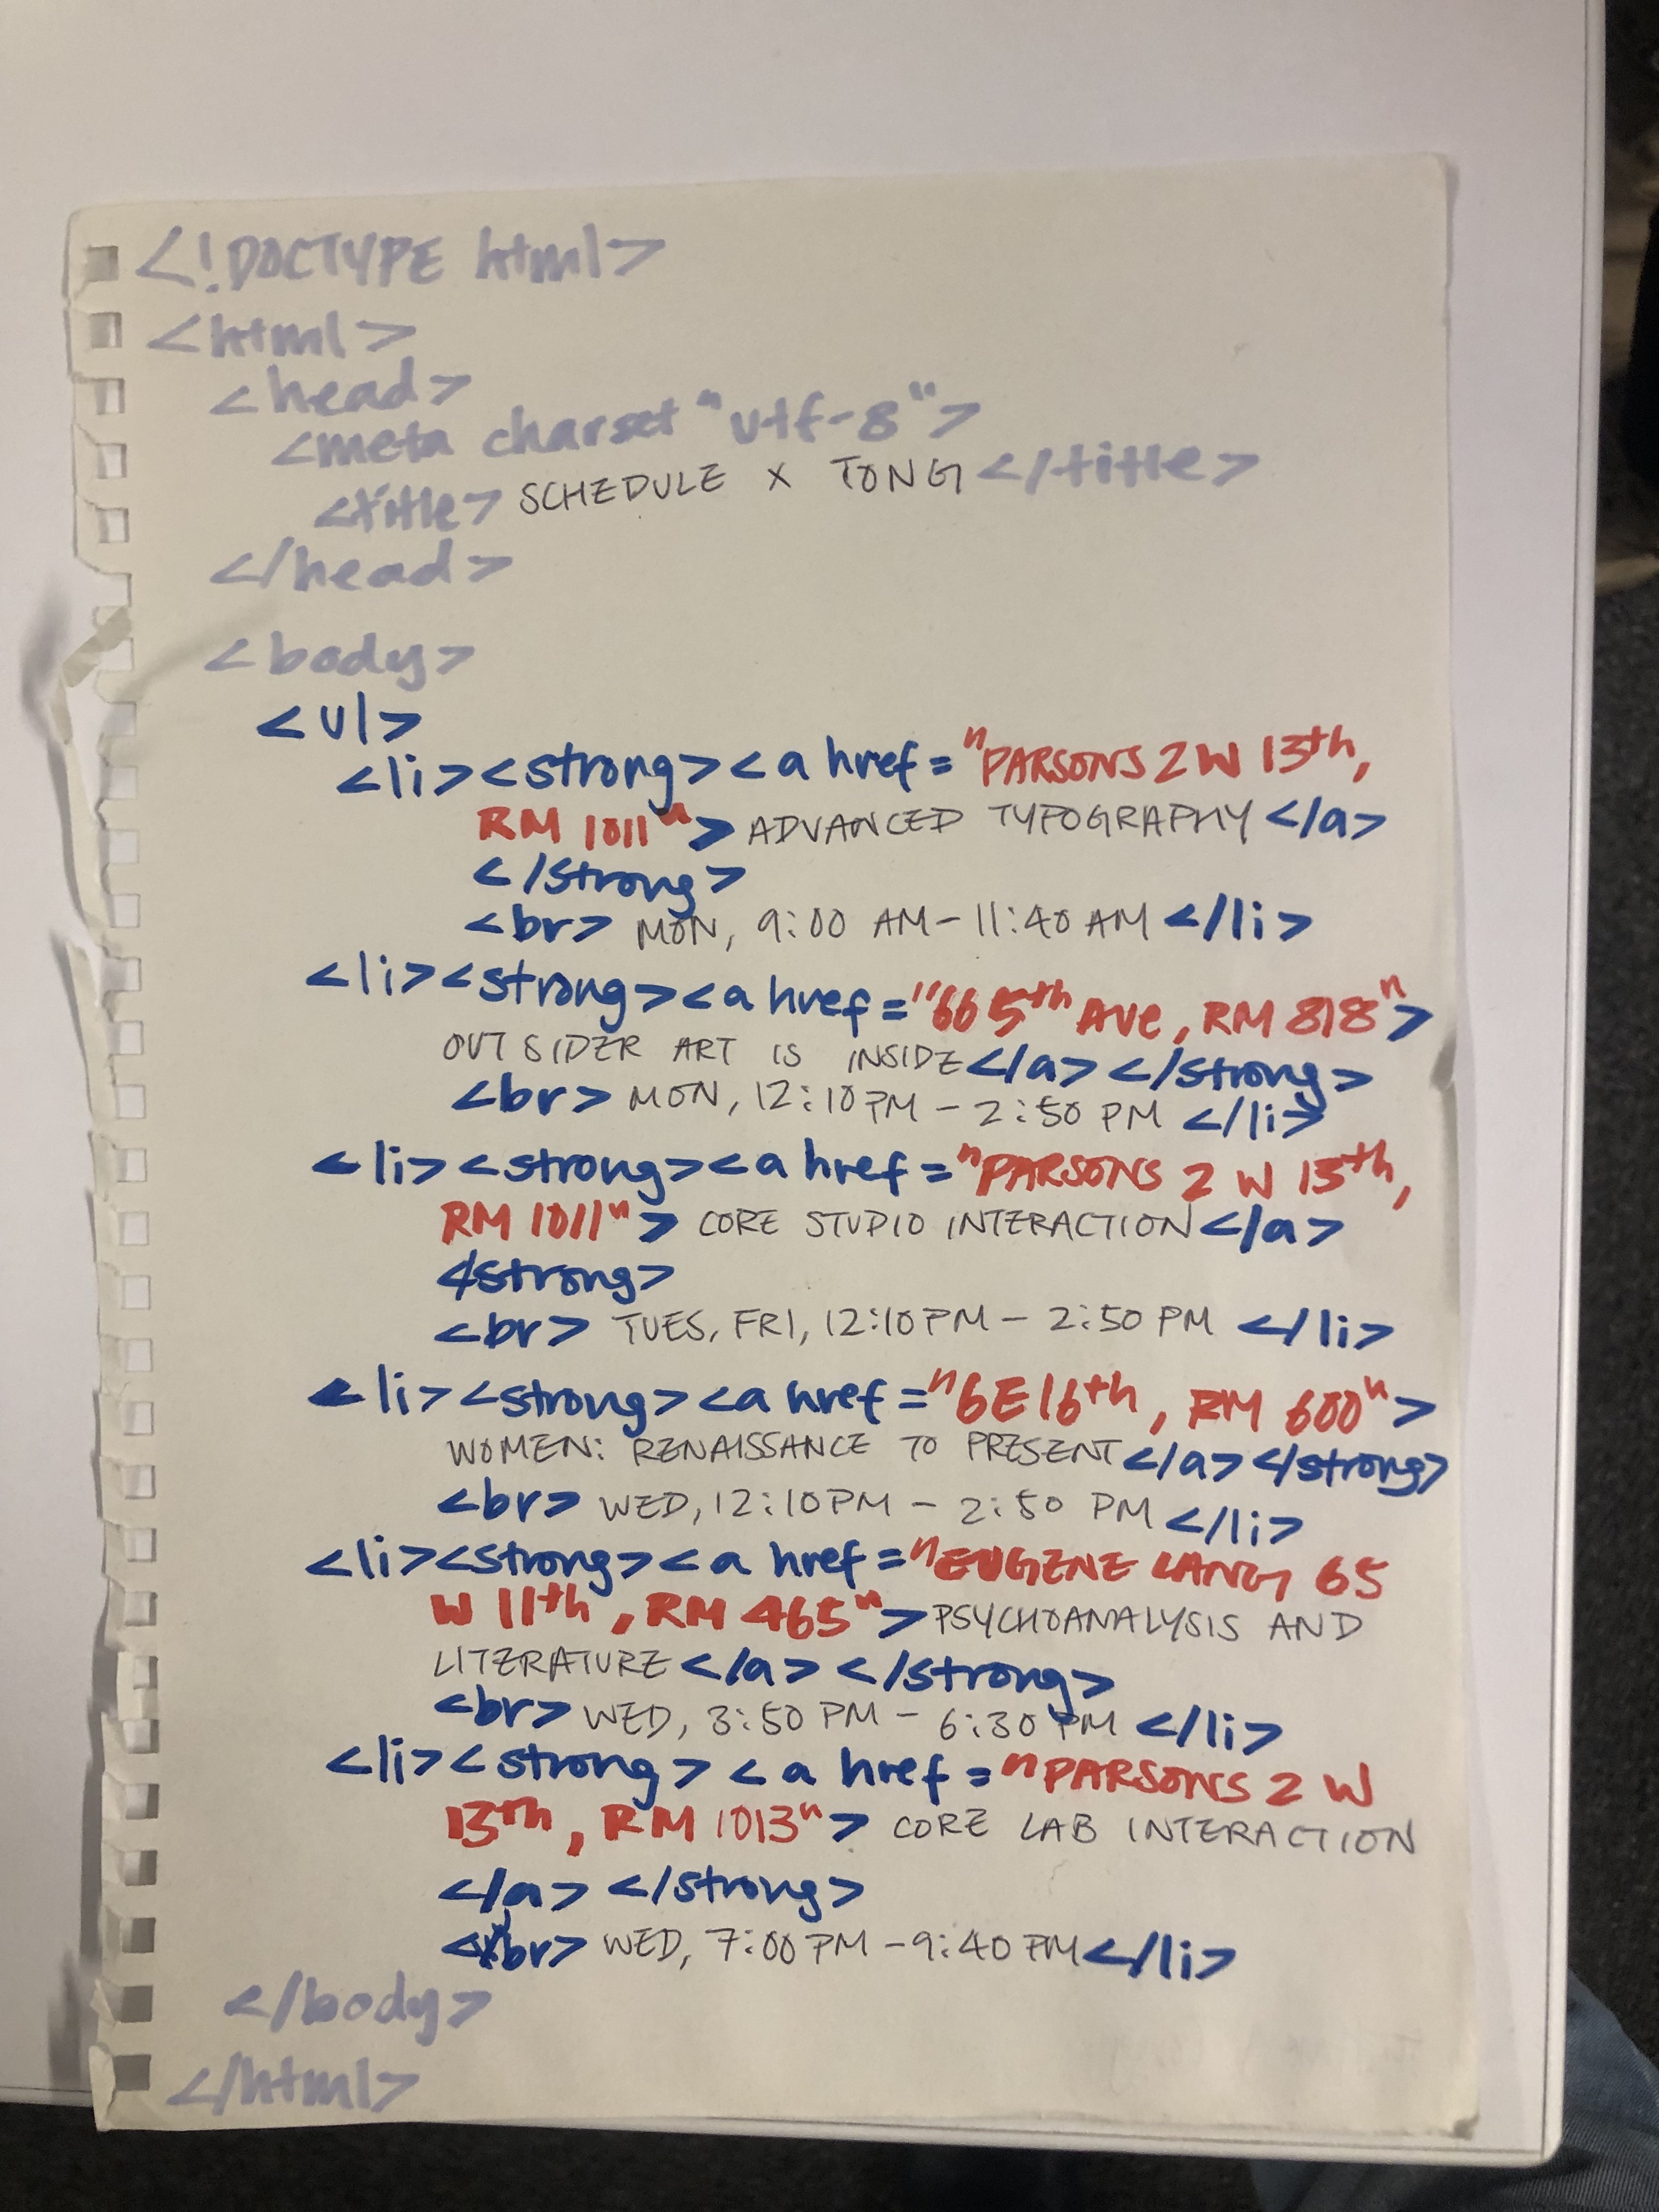 <!DOCTYPE html>
<html>
<head>
<meta charset "utf-8">
<title> SCHEDULE X TONG </title>
</head>
<body>
<ul>
<li><strong><a href="PARSONS 2 W 13th,
RM 1011"> ADVANCED TYPOGRAPHY </a>
</strong>
<br> MON, 9:00 AM - 11:40 AM </li>
<li><strong><a href="66 5th AVE, RM 818">
OUTSIDER ART IS INSIDE </a> </strong>
<br> MON, 12:10 PM - 2:50 PM </li>
<li><strong><a href="PARSONS 2 W 13th,
RM 1011"> CORE STUDIO INTERACTION </a>
</strong>
<br> TUES, FRI, 12:10 PM - 2:50 PM </li>
<li><strong><a href="6 E 16th, RM 600">
WOMEN: RENAISSANCE TO PRESENT </a> </strong>
<br> WED, 12:10 PM - 2:50 PM </li>
<li><strong><a href="EUGENE LANG 65
W 11th, RM 465"> PSYCHOANALYSIS AND
LITERATURE </a> </strong>
<br> WED, 3:50 PM - 6:30 PM </li>
<li><strong><a href="PARSONS 2 W
13th, RM 1013"> CORE LAB INTERACTION
</a> </strong>
<br> WED, 7:00 PM - 9:40 PM </li>
</body>
</html>